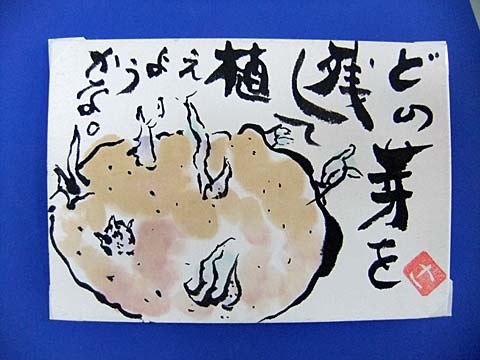 どの芽を
残して
植え
よう
かな。